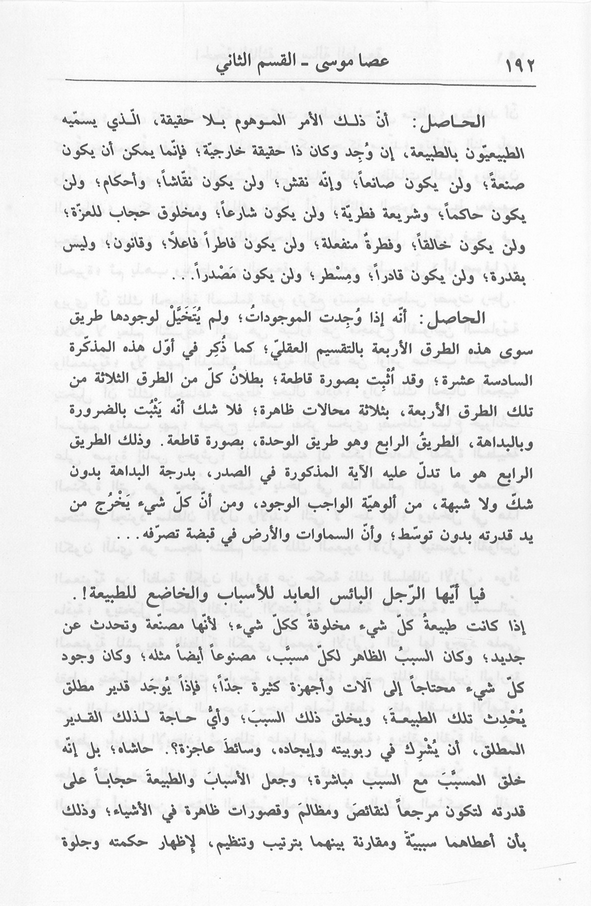 ١٩٢
عصا موسى - القسم الثاني
الحاصل: أنّ ذلك الأمر الموهوم بلا حقيقة، الّذي يسمّيه
الطبيعيّون بالطبيعة، إن وُجِد وكان ذا حقيقة خارجيّة؛ فإنّما يمكن أن يكون
صنعةً؛ ولن يكون صانعاً؛ وإنّه نقش؛ ولن يكون نقّاشاً؛ وأحكام؛ ولن
يكون حاكماً؛ وشريعة فطريّة؛ ولن يكون شارعاً؛ ومخلوق حجاب للعزّة؛
ولن يكون خالقاً؛ وفطرةٌ منفعلة؛ ولن يكون فاطراً فاعلاً؛ وقانون؛ وليس
بقدرة؛ ولن يكون قادراً؛ ومِسْطر؛ ولن يكون مَصْدراً...
الحاصل: أنّه إذا وُجِدت الموجودات؛ ولم يُتَخَيَّلْ لوجودها طريق
سوى هذه الطرق الأربعة بالتقسيم العقليّ؛ كما ذُكِر في أوّل هذه المذكّرة
السادسة عشرة؛ وقد أُثْبِت بصورة قاطعة؛ بطلانُ كلّ من الطرق الثلاثة من
تلك الطرق الأربعة، بثلاثة محالات ظاهرة؛ فلا شك أنّه يَثْبُت بالضرورة
وبالبداهة، الطريقُ الرابع وهو طريق الوحدة، بصورة قاطعة. وذلك الطريق
الرابع هو ما تدلّ عليه الآية المذكورة في الصدر، بدرجة البداهة بدون
شكّ ولا شبهة، من ألوهيّة الواجب الوجود، ومن أنّ كلّ شيء يَخْرُج من
يد قدرته بدون توسّط؛ وأنّ السماوات والأرض في قبضة تصرّفه...
فيا أيّها الرّجل البائس العابد للأسباب والخاضع للطبيعة!.
إذا كانت طبيعة كلّ شيء مخلوقةً ككلّ شيء؛ لأنّها مصنّعة وتحدث عن
جديد؛ وكان السببُ الظاهر لكلّ مسبَّب، مصنوعاً أيضاً مثله؛ وكان وجود
كلّ شيء محتاجاً إلى آلات وأجهزة كثيرة جدّاً؛ فإذاً يُوجَد قدير مطلق
يُحْدِث تلك الطبيعة؛ ويخلق ذلك السبب؛ وأيُّ حاجة لذلك القدير
المطلق، أن يُشْرِك في ربوبيته وإيجاده، وسائط عاجزة؟. حاشاه؛ بل إنّه
خلق المسبَّبَ مع السبب مباشرة؛ وجعل الأسبابَ والطبيعةَ حجاباً على
قدرته لتكون مرجعاً لنقائصَ ومظالمَ وقصورات ظاهرة في الأشياء؛ وذلك
بأن أعطاهما سببيّةً ومقارنة بينهما بترتيب وتنظيم، لإظهار حكمته وجلوة